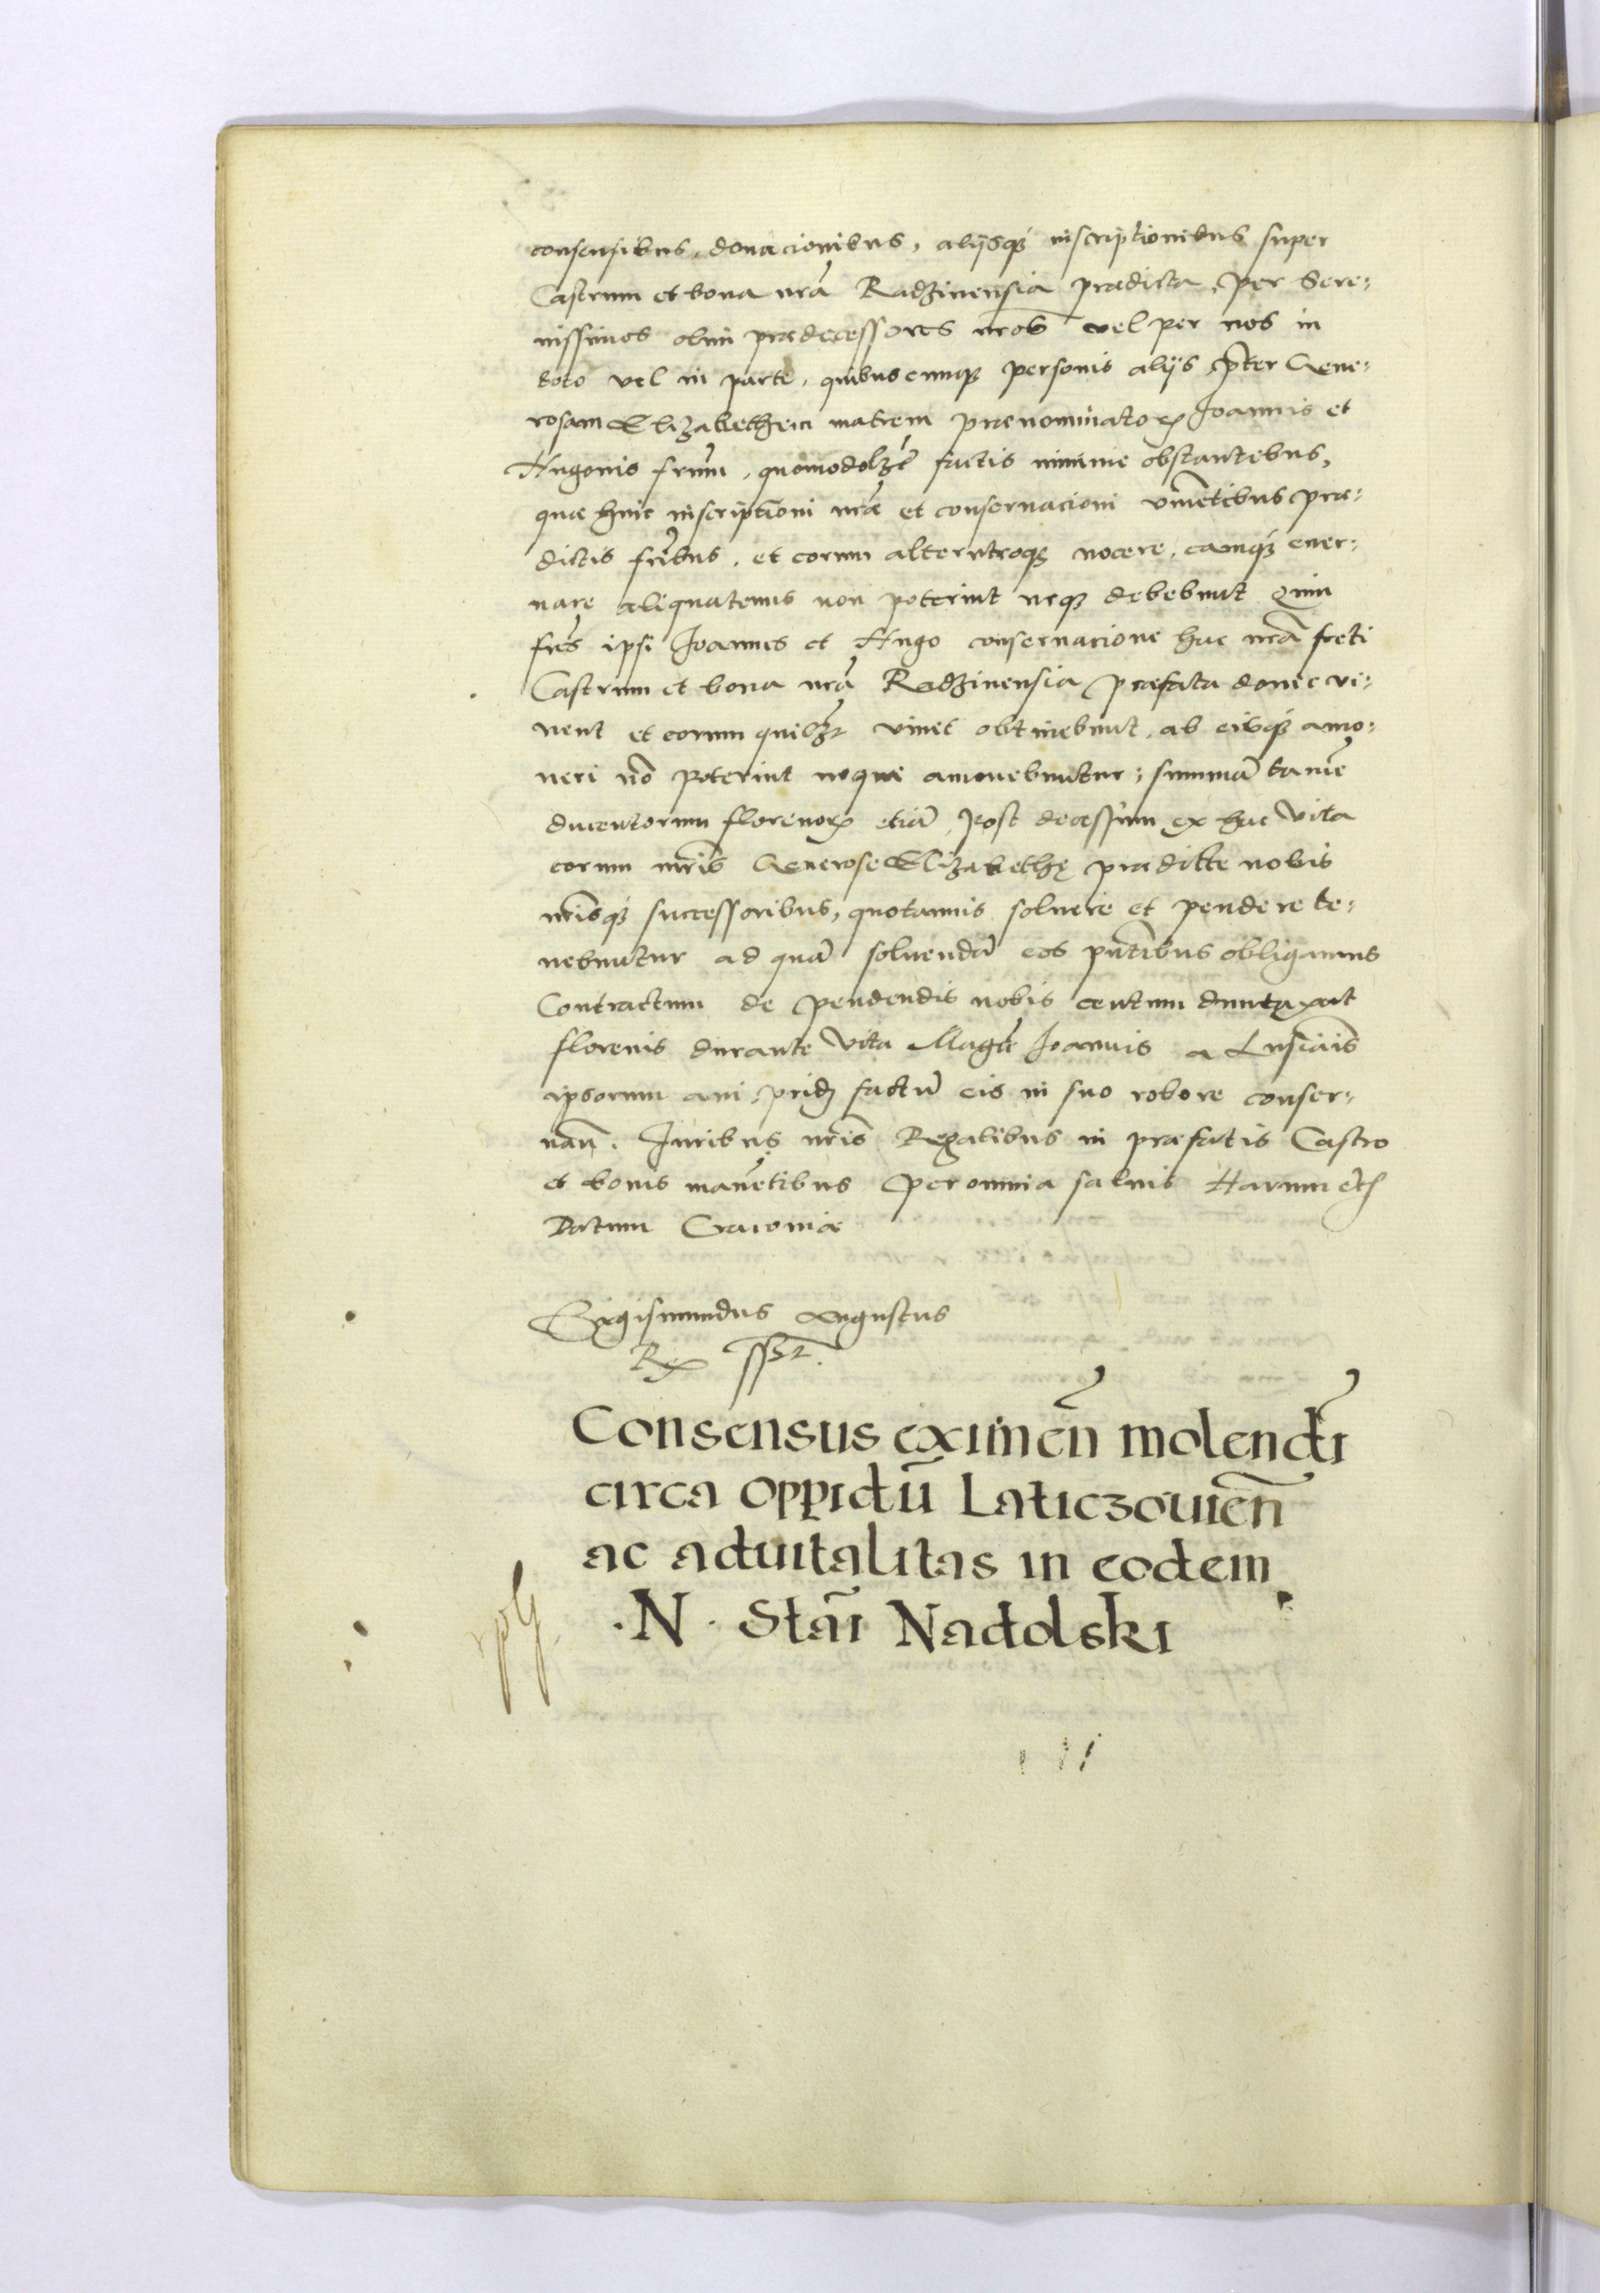 consensibus, donacionibus, alijsq́ꝫ inscriptionibus super
Castrum et bona nr̃a Radzinensia praedicta, per Sere:
nissimos olim praedecessores nr̃os vel per nos in
toto vel in parte, quibuscunqꝫ personis alijs p̃ter Gene:
rosam Elizabetham matrem praenominatoꝝ Joannis et
Hugonis fr̃um, quomodolꝫt factis minime obstantebus,
quae huic inscriptioni nr̃ae et conservacioni viuẽtibus prae:
dictis fr̃ibus, et eorum alterutroqꝫ nocere, eamq́ꝫ ener:
uare aliquatenus non poterint neqꝫ debebunt Quin
fr̃es ipsi Joannes et Hugo conseruacione hac nr̃a freti
Castrum et bona nr̃a Radzinensia praefata donec vi:
uent et eorum quilꝫt viuet obtinebunt, ab eisq́ꝫ amo:
ueri nõ poterint neque amouebuntur: summã tamẽ
ducentorum florenoꝝ etiã post decessum ex hac vita
eorum mr̃is Generose Elizabethę praedictе nobis
nr̃isq́ꝫ successoribus, quotannis soluere et pendere te:
nebuntur ad quã soluendã eos pñtibus obligamus
Contractum de pendendis nobis centum duntaxat
florenis durante vita Magci Joannis a
ipsorum aui, pridẽ factũ eis in suo robore conser:
uañ. Juribus nr̃is Regalibus in praefatis Castro
et bonis manẽtibus per omnia saluis Harum etc
Datum Cracouiae
Sigismundus Augustus
Rex sszt.
Consensus eximeñ molendi
circa oppidũ Laticzouieñ
ac aduitalitas in eodem
.N. Stãi Nadolski